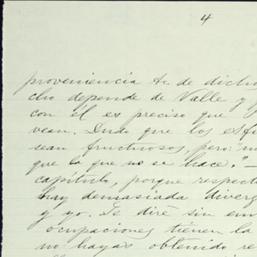 4
proveniencia de dicho
cho depende de Valle y
con él es preciso que
vean. Dudo que los esfu
sean fructuosos, pero
que lo que no se hace."
capítulo, porque respect
hay demasiada diverg
y yo. Le diré sin em
ocupaciones tienen la
no hayas obtenido re